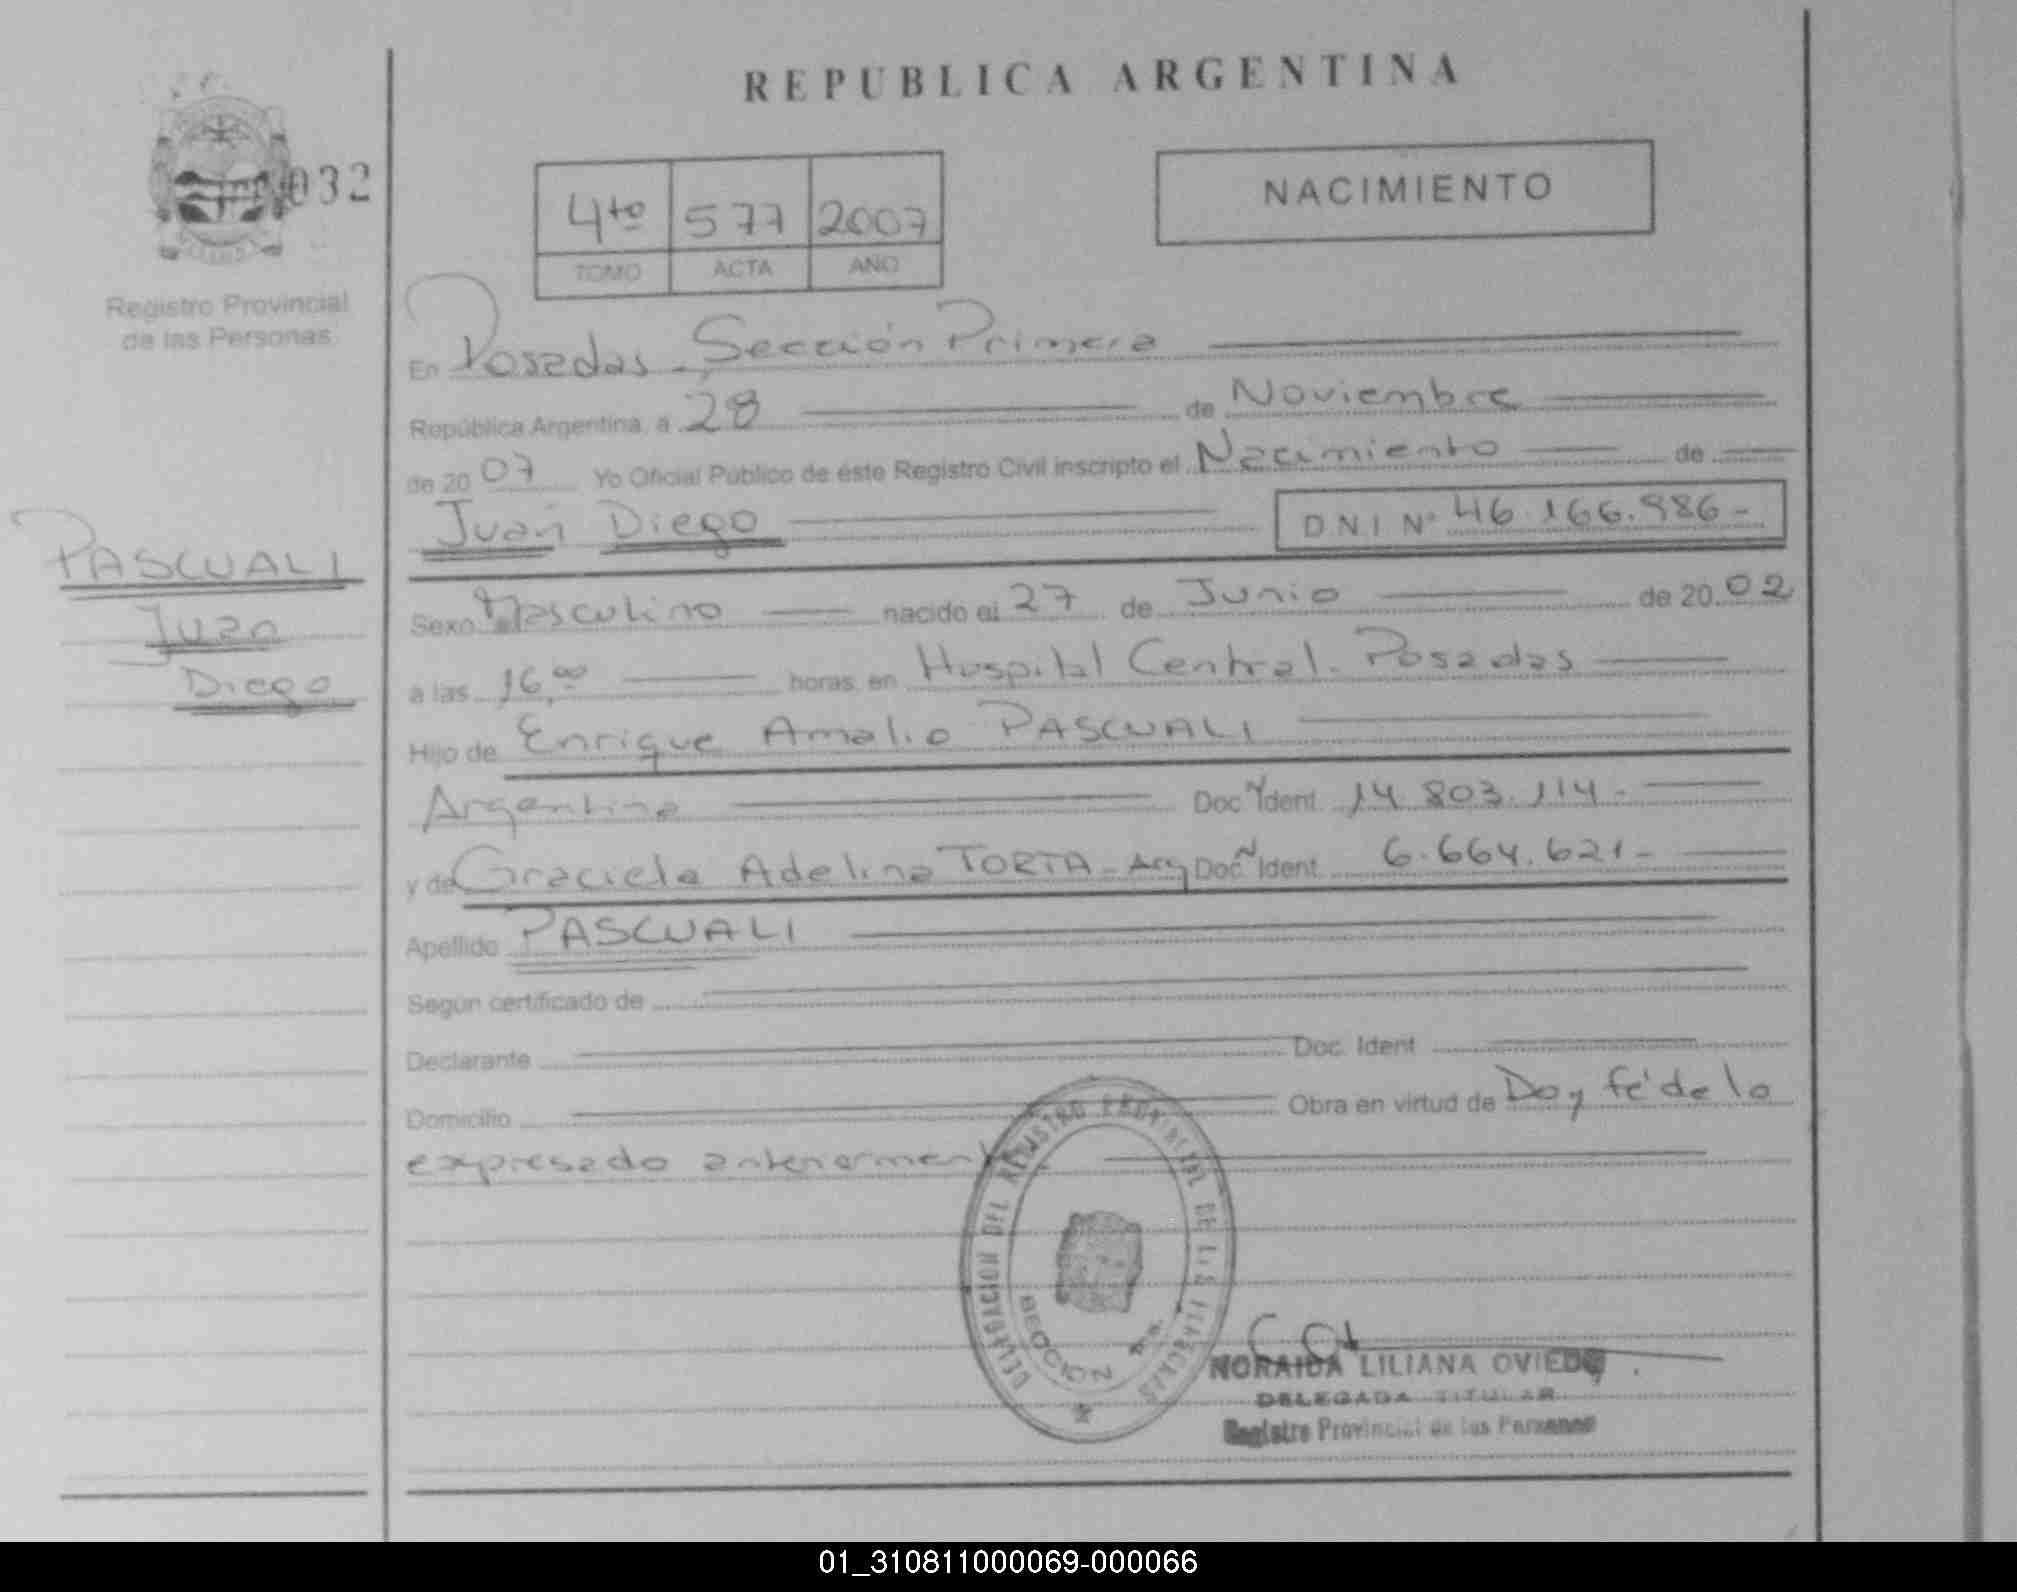 REPUBLICA ARGENTINA
032
Registro Provincial
de las Personas
4to 577 2007
TOMO ACTA AÑO
NACIMIENTO
En Posadas - Sección Primera
República Argentina, a 28 de Noviembre
de 2007 Yo Oficial Público de éste Registro Civil inscripto el Nacimiento de
Juan Diego DNI Nº 46.166.986-
PASCUALI
Juan
Diego
Sexo Masculino nacido al 27 de Junio de 2002
a las 16,00 horas, en Hospital Central. Posadas
Hijo de Enrique Amalio PASCUALI
Argentino Doc Nº Ident. 14.803.114.-
y de Graciela Adelina TORTA - Arg Doc Nº Ident. 6.664.621-
Apellido PASCUALI
Según certificado de
Declarante Doc. Ident
Domicilio Obra en virtud de Doy fé de lo
expresado anteriorment
DELEGACION DEL REGISTRO PROVINCIAL DE LAS PERSONAS
SECCION 1ra.
NORAIDA LILIANA OVIEDO
DELEGADA TITULAR
Registro Provincial de las Personas
01_310811000069-000066